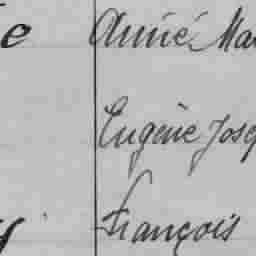 e Année Ma
Eugène Jose
François